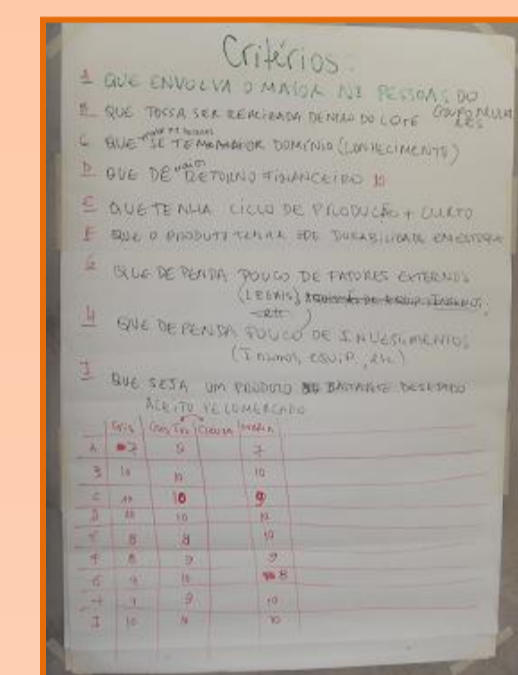 Critérios:
A QUE ENVOLVA O MAIOR Nº PESSOAS DO GRUPO MULHERES
B QUE POSSA SER REALIZADA DENTRO DO LOTE
C QUE SE TEM MAIOR DOMÍNIO (CONHECIMENTO)
D QUE DE MAIOR RETORNO FINANCEIRO 10
E QUE TENHA CICLO DE PRODUÇÃO + CURTO
F QUE O PRODUTO TENHA DURABILIDADE EM ESTOQUE
G QUE DEPENDA POUCO DE FATORES EXTERNOS
(LEGAIS)
etc
H QUE DEPENDA POUCO DE INVESTIMENTOS
(Insumos, EQUIP., etc)
I QUE SEJA UM PRODUTO BASTANTE DESEJADO
ACEITO PELO MERCADO
Cris
A 7 9 7
B 10 10 10
C 10 9
D 10 10
E 8 8 10
F 8 9 9
G 9 10 8
H 9 9 10
I 10 10